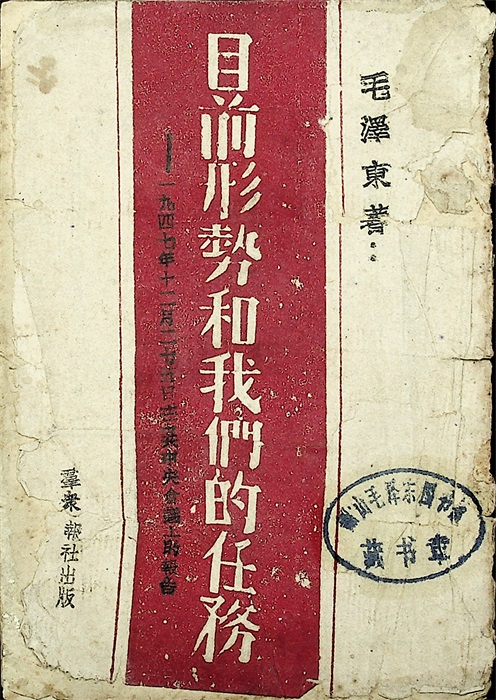 毛澤東著
目前形勢和我們的任務
——一九四七年十二月二十五日在中共中央會議上的報告
羣衆報社出版
韶山毛澤东图书馆
藏书章